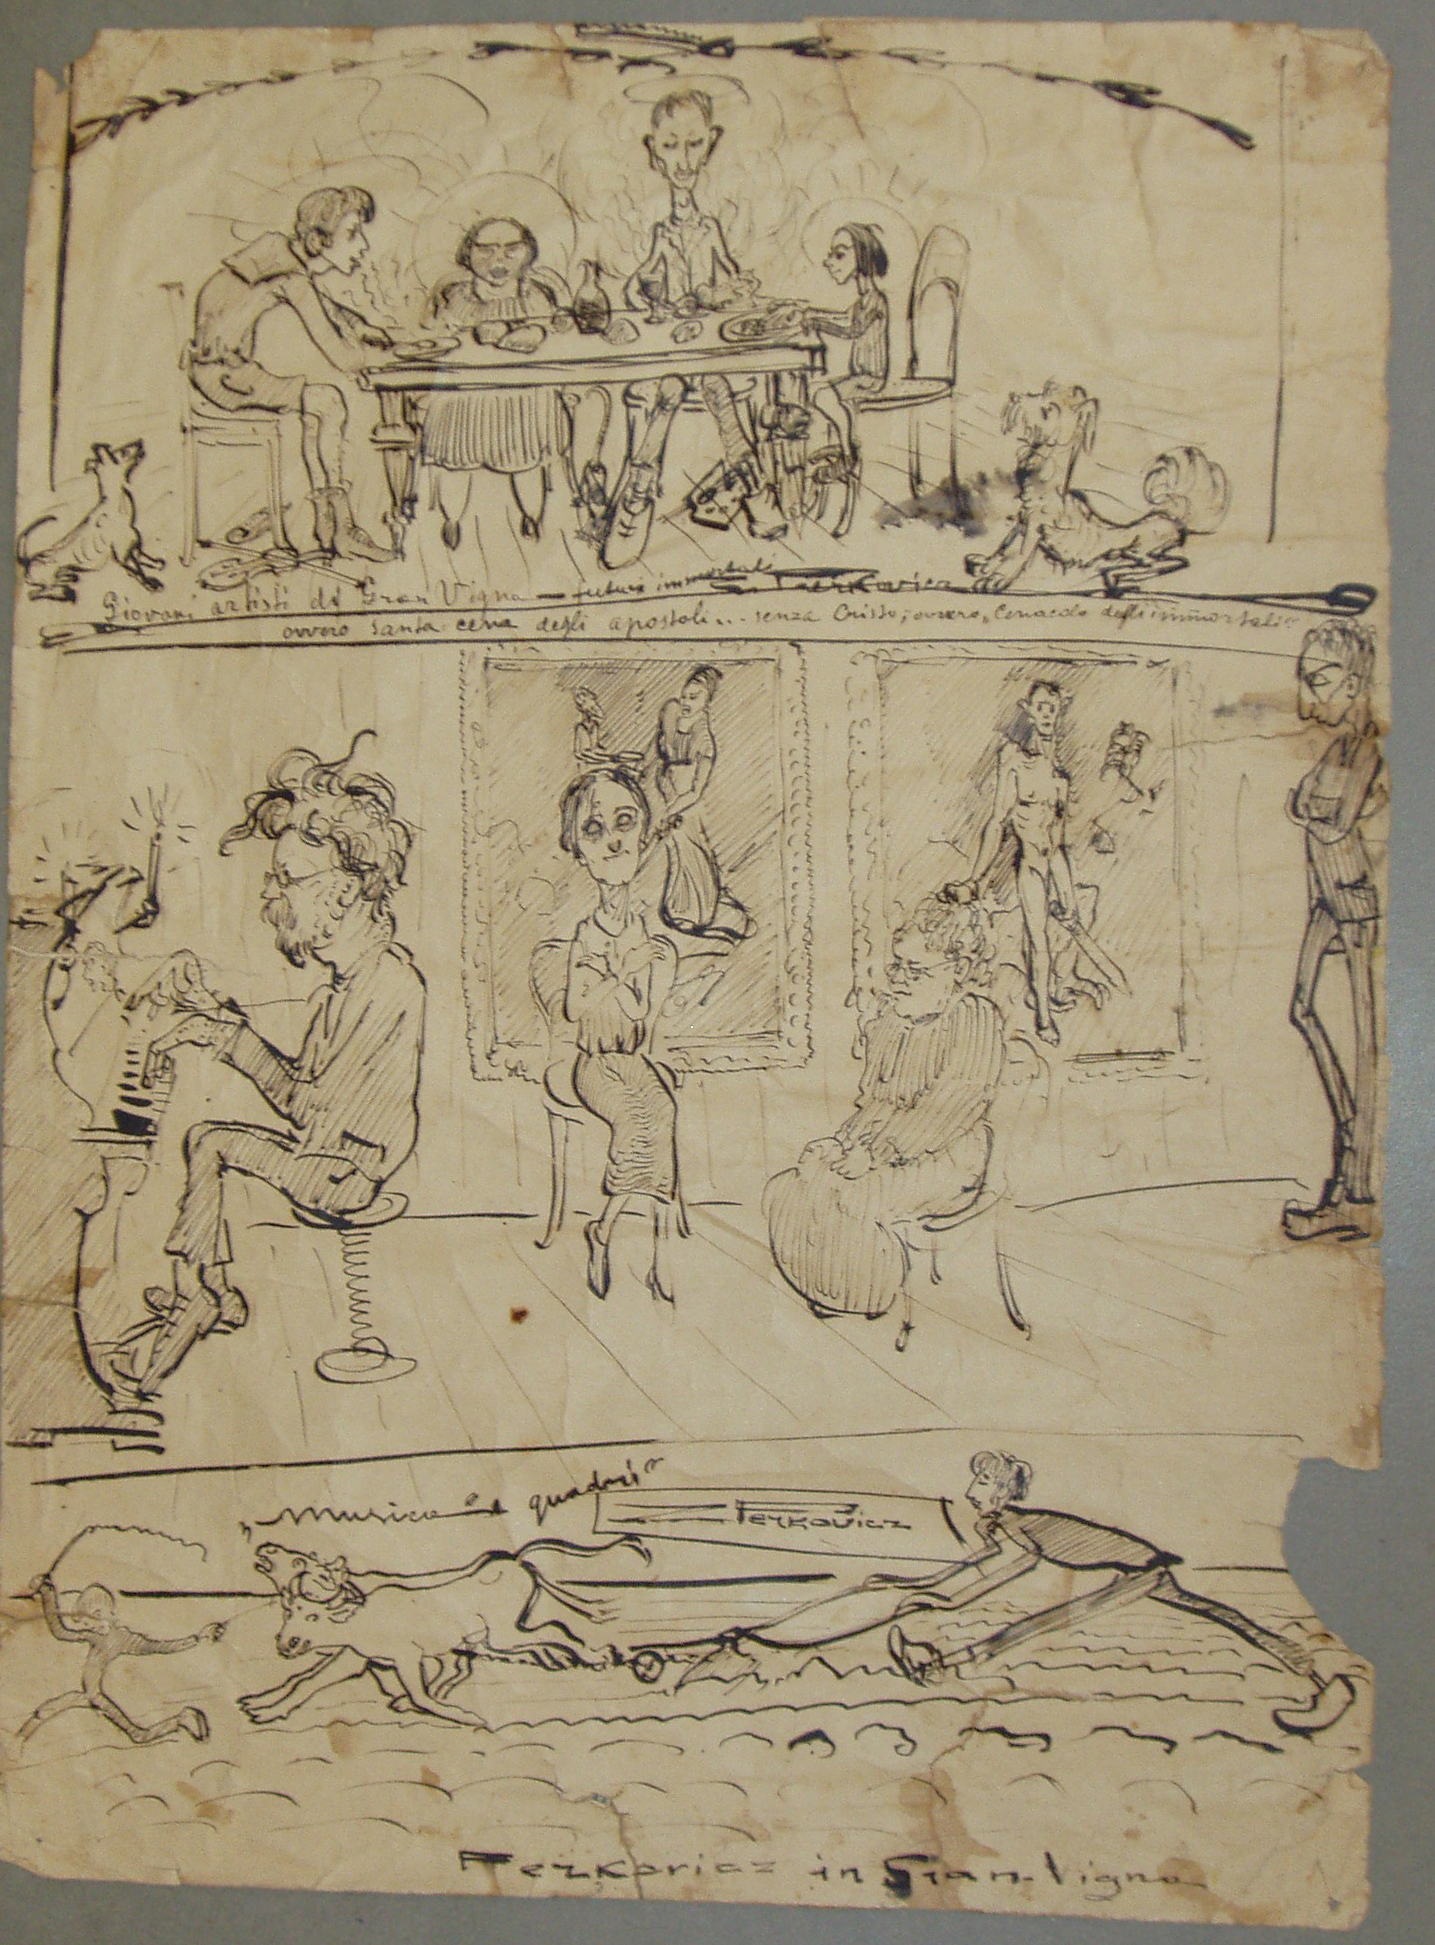 Giovani artisti di Gran Vigna — futuri immortali Perkovicz
ovvero santa cena degli apostoli... senza Cristo; ovvero „Cenacolo degli immortali"
„Musica e quadri"
Perkovicz
Perkovicz in Gran-Vigna